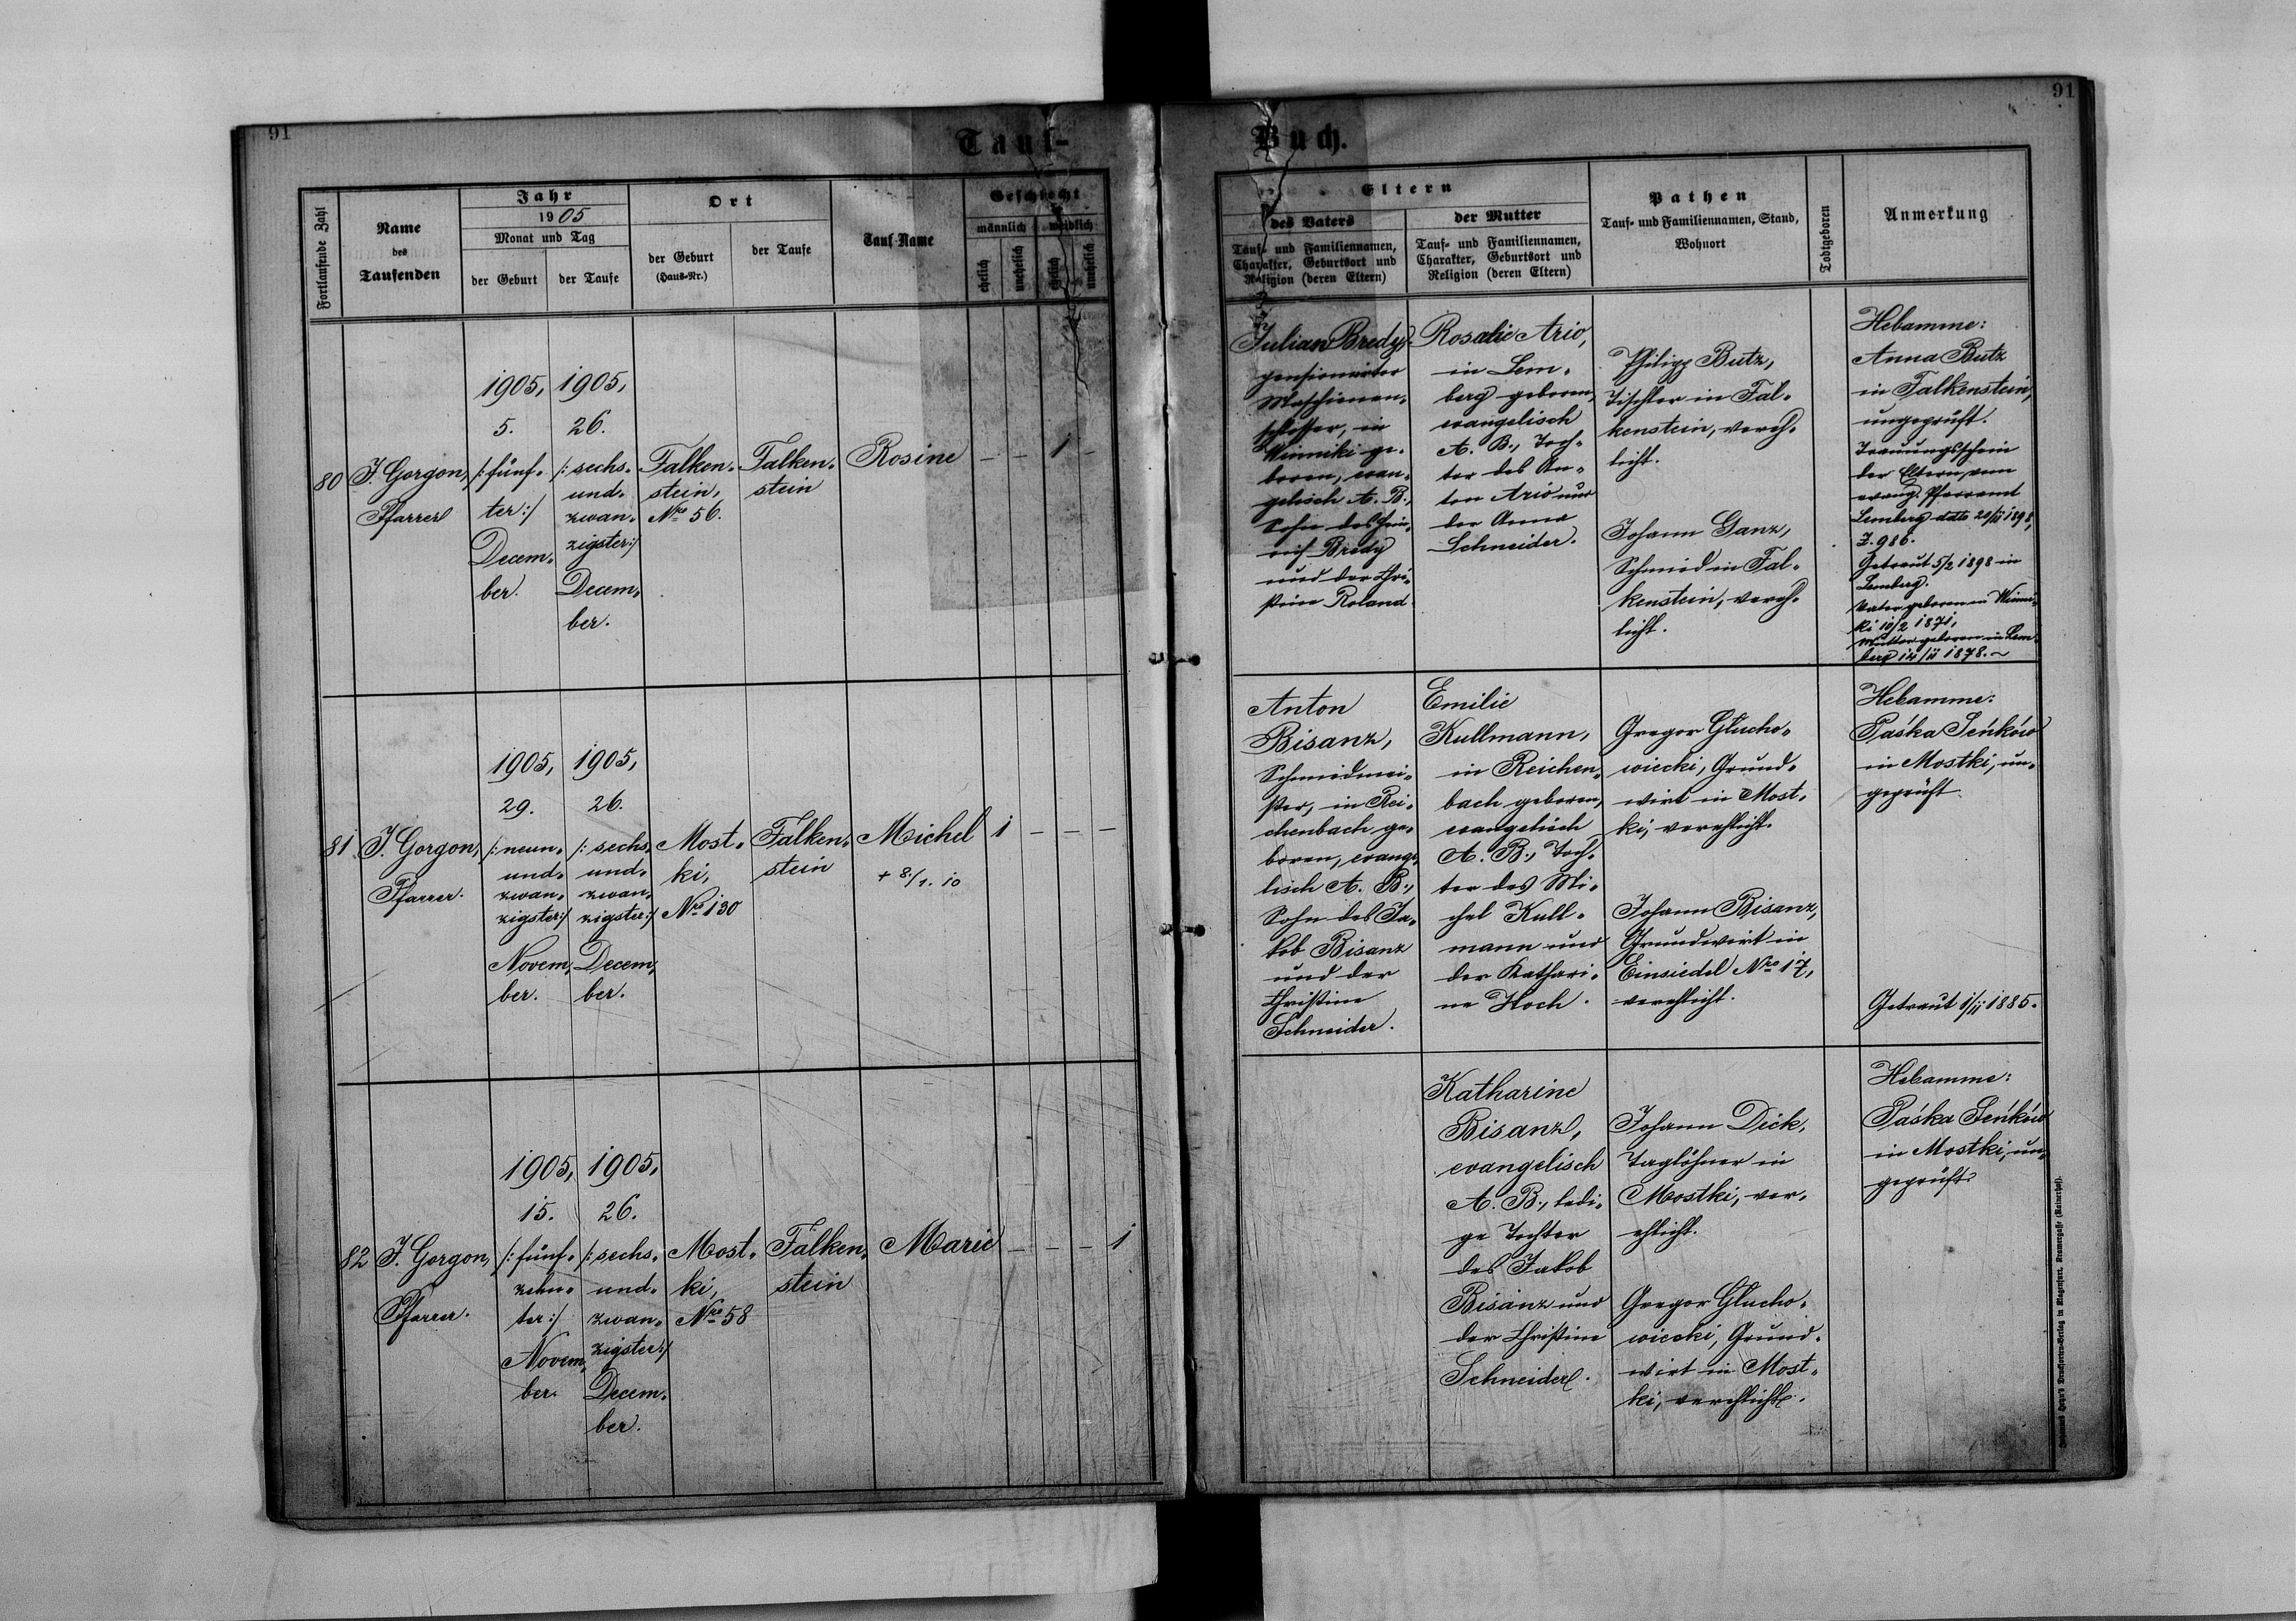 91
91
Tauf-
Buch.
Fortlaufende Zahl
Name
des
Taufenden
Jahr
1905
Monat und Tag
der Geburt
der Taufe
Ort
der Geburt
(Haus-Nr.)
der Taufe
Tauf-Name
Geschlecht
männlich
weiblich
ehelich
unehelich
ehelich
unehelich
Eltern
des Vaters
Tauf- und Familiennamen,
Charakter, Geburtsort und
Religion (deren Eltern)
der Mutter
Tauf- und Familiennamen,
Charakter, Geburtsort und
Religion (deren Eltern)
Pathen
Tauf- und Familiennamen, Stand,
Wohnort
Todtgeboren
Anmerkung
80
J. Gorgon,
Pfarrer
1905,
5.
/: fünf-
ter :/
Decem-
ber.
1905,
26.
/: sechs-
und-
zwan-
zigster :/
Decem-
ber.
Falken-
stein,
Nro 56.
Falken-
stein
Rosine
– – 1 –
Julian Bredy,
pensionirter
Maschienen-
schlosser, in
Winniki ge-
boren, evan-
gelisch A. B.,
Sohn des Hein-
rich Bredy
und der Chri-
stine Roland.
Rosalie Ario,
in Lem-
berg geboren,
evangelisch
A. B., Toch-
ter des An-
ton Ario und
der Anna
Schneider.
Philipp Butz,
Tischler in Fal-
kenstein, vereh-
licht.
Johann Ganz,
Schmied in Fal-
kenstein, vereh-
licht.
Hebamme:
Anna Butz
in Falkenstein,
ungeprüft.
Trauungsschein
der Eltern vom
evang. Pfarramt
Lemberg ddto 20/11 1898,
Z. 986.
Getraut 5/2 1898 in
Lemberg.
Vater geboren in Winni-
ki 10/2 1871,
Mutter geboren in Lem-
berg 14/11 1878. ~
81
J. Gorgon,
Pfarrer.
1905,
29.
/: neun-
und-
zwan-
zigster :/
Novem-
ber.
1905,
26.
/: sechs-
und-
zwan-
zigster :/
Decem-
ber.
Most-
ki,
Nro 130
Falken-
stein
Michel
+ 8./1. 10
1 – – –
Anton
Bisanz,
Schmiedmei-
ster, in Rei-
chenbach ge-
boren, evange-
lisch A. B.,
Sohn des Ja-
kob Bisanz
und der
Christine
Schneider.
Emilie
Kullmann,
in Reichen-
bach geboren,
evangelisch
A. B., Toch-
ter des Mi-
chel Kull-
mann und
der Kathari-
ne Hoch.
Gregor Głucho-
wiecki, Grund-
wirt in Most-
ki, verehlicht.
Johann Bisanz,
Grundwirt in
Einsiedel Nro 17,
verehlicht.
Hebamme:
Paśka Seńków
in Mostki, un-
geprüft.
Getraut 1/11 1885.
82
J. Gorgon,
Pfarrer.
1905,
15.
/: fünf-
zehn-
ter :/
Novem-
ber.
1905,
26.
/: sechs-
und-
zwan-
zigster :/
Decem-
ber.
Most-
ki,
Nro 58
Falken-
stein
Marie
– – – 1
Katharine
Bisanz,
evangelisch
A. B., ledi-
ge Tochter
des Jakob
Bisanz und
der Christine
Schneider.
Johann Dick,
Taglöhner in
Mostki, ver-
ehlicht.
Gregor Głucho-
wiecki, Grund-
wirt in Most-
ki, verehlicht.
Hebamme:
Paśka Seńków
in Mostki, un-
geprüft.